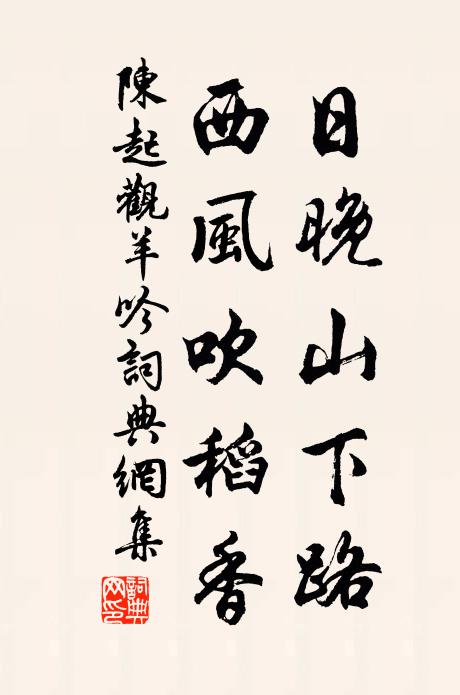 日晚山下路
西風吹稻香
陳起觀羊吟詞典網集
詞典網印